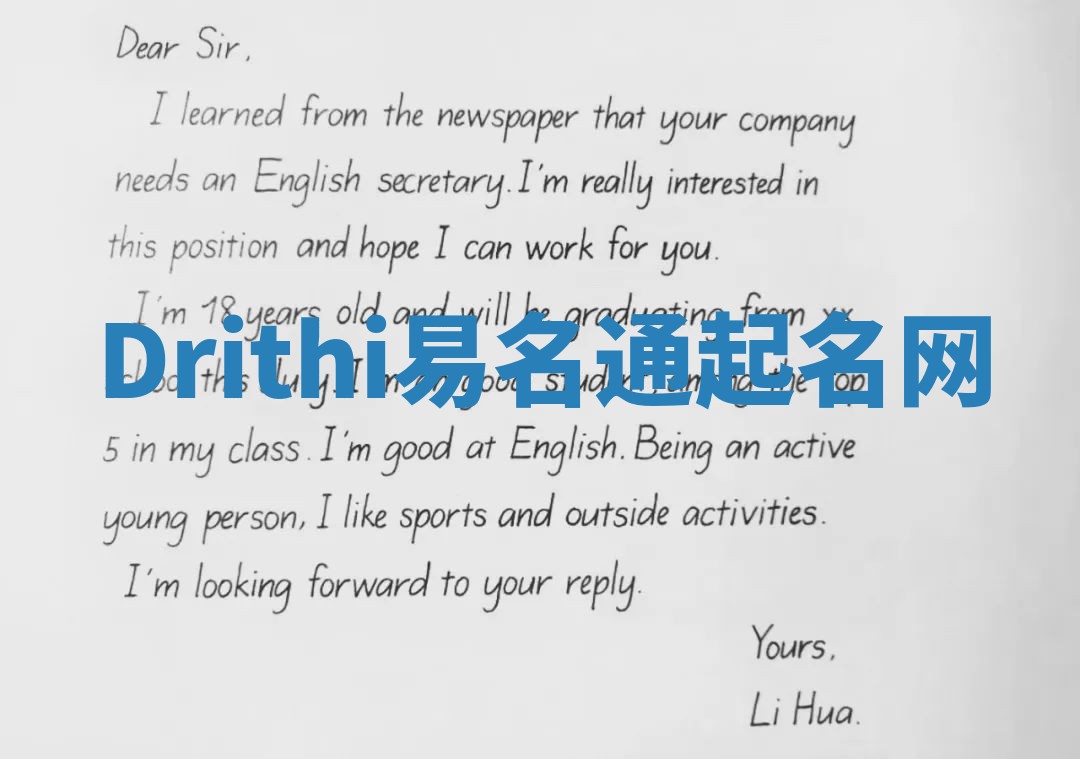 Dear Sir,
I learned from the newspaper that your company
needs an English secretary. I'm really interested in
this position and hope I can work for you.
I'm 18 years old and will be graduating from xx
Drithi易名通起名网
this July. I'm a good student, among the top
5 in my class. I'm good at English. Being an active
young person, I like sports and outside activities.
I'm looking forward to your reply.
Yours,
Li Hua.